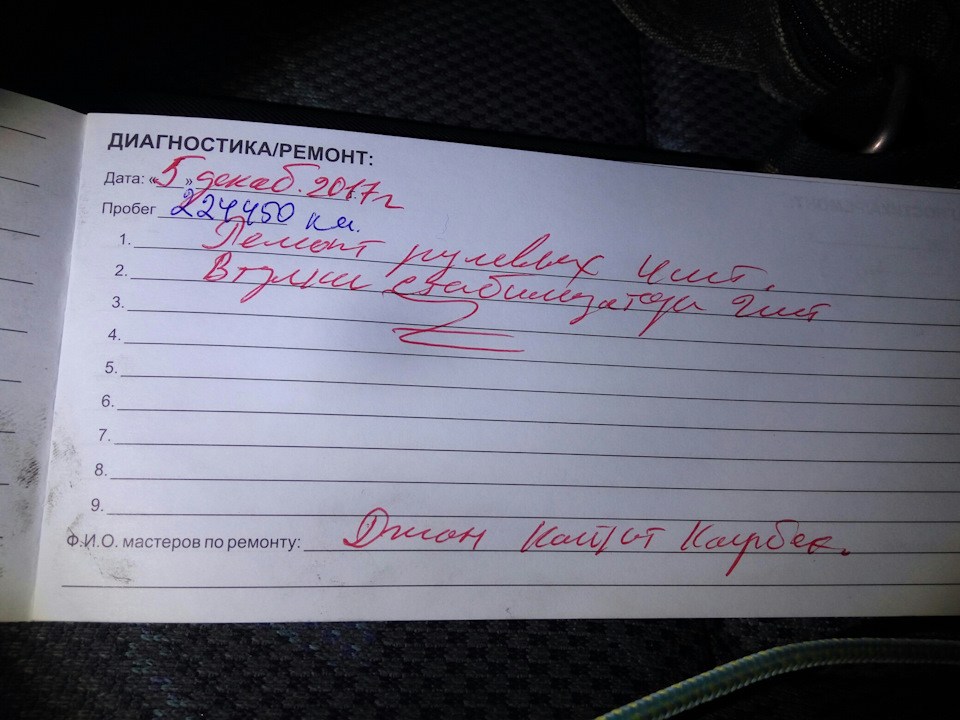 ДИАГНОСТИКА/РЕМОНТ:
Дата: «5» декаб. 2017 г
Пробег 224450 км.
1. Ремонт рулевых 4 шт.
2. Втулки стабилизатора 2 шт
3.
4.
5.
6.
7.
8.
9.
Ф.И.О. мастеров по ремонту: Джон Каирбек.